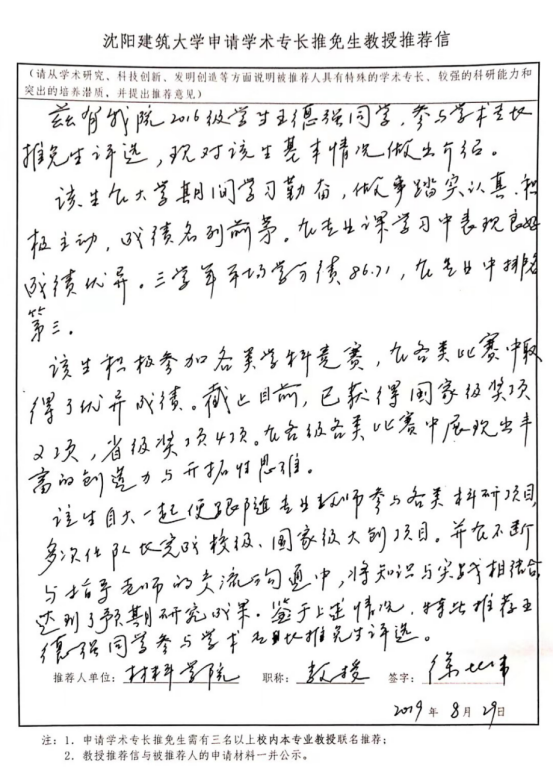 沈阳建筑大学申请学术专长推免生教授推荐信
(请从学术研究、科技创新、发明创造等方面说明被推荐人具有特殊的学术专长、较强的科研能力和
突出的培养潜质，并提出推荐意见)
兹有我院2016级学生王德强同学，参与学术专长
推免生评选，现对该生基本情况做出介绍。
该生在大学期间学习勤奋，做事踏实认真、积
极主动，成绩名列前茅。在专业课学习中表现良好
成绩优异。三学年平均学分绩86.71，在专业中排名
第三。
该生积极参加各类学科竞赛，在各类比赛中取
得了优异成绩。截止目前，已获得国家级奖项
2项，省级奖项4项。在各级各类比赛中展现出丰
富的创造力与开拓性思维。
该生自大一起便跟随专业教师参与各类科研项目，
多次任队长完成校级、国家级大创项目。并在不断
与指导老师的交流沟通中，将知识与实践相结合，
达到了预期研究成果。鉴于上述情况，特此推荐王
德强同学参与学术专长推免生评选。
推荐人单位：材料学院 职称：教授 签字：徐
2019 年 8 月 29日
注：1. 申请学术专长推免生需有三名以上校内本专业教授联名推荐；
2. 教授推荐信与被推荐人的申请材料一并公示。